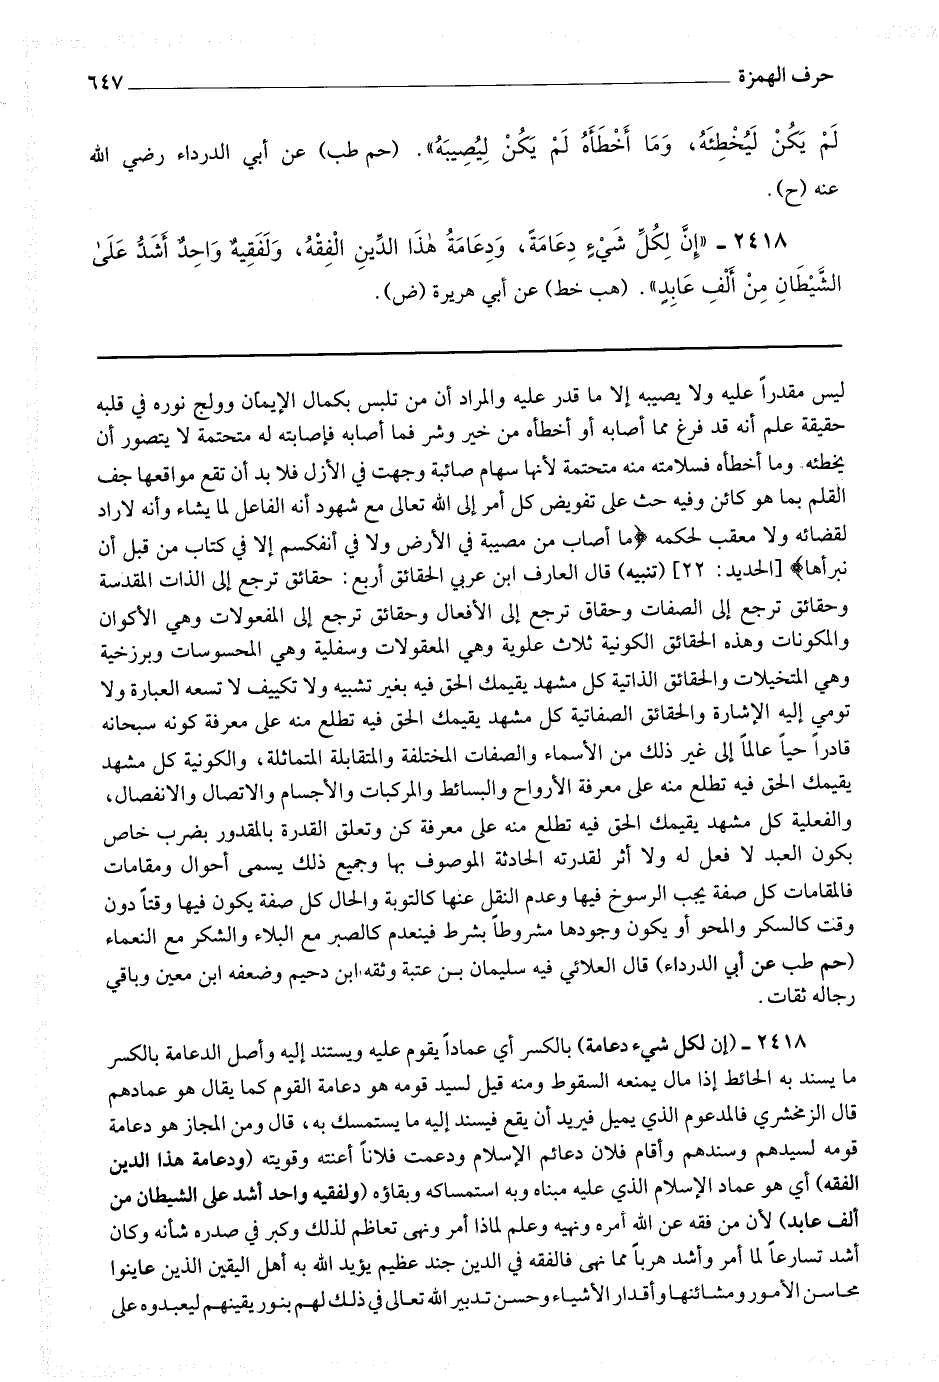 حرف الهمزة ٦٤٧
لَمْ يَكُنْ لَيُخْطِئَهُ، وَمَا أَخْطَأَهُ لَمْ يَكُنْ لِيُصِيبَهُ». (حم طب) عن أبي الدرداء رضي الله
عنه (ح).
٢٤١٨ ـ «إِنَّ لِكُلِّ شَيْءٍ دِعَامَةً، وَدِعَامَةُ هٰذَا الدِّينِ الْفِقْهُ، وَلَفَقِيهٌ وَاحِدٌ أَشَدُّ عَلَىٰ
الشَّيْطَانِ مِنْ أَلْفِ عَابِدٍ». (هب خط) عن أبي هريرة (ض).
ليس مقدراً عليه ولا يصيبه إلا ما قدر عليه والمراد أن من تلبس بكمال الإيمان وولج نوره في قلبه
حقيقة علم أنه قد فرغ مما أصابه أو أخطأه من خير وشر فما أصابه فإصابته له متحتمة لا يتصور أن
يخطئه وما أخطأه فسلامته منه متحتمة لأنها سهام صائبة وجهت في الأزل فلا بد أن تقع مواقعها جف
القلم بما هو كائن وفيه حث على تفويض كل أمر إلى الله تعالى مع شهود أنه الفاعل لما يشاء وأنه لاراد
لقضائه ولا معقب لحكمه ﴿ما أصاب من مصيبة في الأرض ولا في أنفكسم إلا في كتاب من قبل أن
نبرأها﴾ [الحديد: ٢٢] (تنبيه) قال العارف ابن عربي الحقائق أربع: حقائق ترجع إلى الذات المقدسة
وحقائق ترجع إلى الصفات وحقاق ترجع إلى الأفعال وحقائق ترجع إلى المفعولات وهي الأكوان
والمكونات وهذه الحقائق الكونية ثلاث علوية وهي المعقولات وسفلية وهي المحسوسات وبرزخية
وهي المتخيلات والحقائق الذاتية كل مشهد يقيمك الحق فيه بغير تشبيه ولا تكييف لا تسعه العبارة ولا
تومي إليه الإشارة والحقائق الصفاتية كل مشهد يقيمك الحق فيه تطلع منه على معرفة كونه سبحانه
قادراً حياً عالماً إلى غير ذلك من الأسماء والصفات المختلفة والمتقابلة المتماثلة، والكونية كل مشهد
يقيمك الحق فيه تطلع منه على معرفة الأرواح والبسائط والمركبات والأجسام والاتصال والانفصال،
والفعلية كل مشهد يقيمك الحق فيه تطلع منه على معرفة كن وتعلق القدرة بالمقدور بضرب خاص
بكون العبد لا فعل له ولا أثر لقدرته الحادثة الموصوف بها وجميع ذلك يسمى أحوال ومقامات
فالمقامات كل صفة يجب الرسوخ فيها وعدم النقل عنها كالتوبة والحال كل صفة يكون فيها وقتاً دون
وقت كالسكر والمحو أو يكون وجودها مشروطاً بشرط فينعدم كالصبر مع البلاء والشكر مع النعماء
(حم طب عن أبي الدرداء) قال العلائي فيه سليمان بن عتبة وثقه ابن دحيم وضعفه ابن معين وباقي
رجاله ثقات.
٢٤١٨ ـ (إن لكل شيء دعامة) بالكسر أي عماداً يقوم عليه ويستند إليه وأصل الدعامة بالكسر
ما يسند به الحائط إذا مال يمنعه السقوط ومنه قيل لسيد قومه هو دعامة القوم كما يقال هو عمادهم
قال الزمخشري فالمدعوم الذي يميل فيريد أن يقع فيسند إليه ما يستمسك به، قال ومن المجاز هو دعامة
قومه لسيدهم وسندهم وأقام فلان دعائم الإسلام ودعمت فلاناً أعنته وقويته (ودعامة هذا الدين
الفقه) أي هو عماد الإسلام الذي عليه مبناه وبه استمساكه وبقاؤه (ولفقيه واحد أشد على الشيطان من
ألف عابد) لأن من فقه عن الله أمره ونهيه وعلم لماذا أمر ونهى تعاظم لذلك وكبر في صدره شأنه وكان
أشد تسارعاً لما أمر وأشد هرباً مما نهى فالفقه في الدين جند عظيم يؤيد الله به أهل اليقين الذين عاينوا
محاسن الأمور ومشائنها وأقدار الأشياء وحسن تدبير الله تعالى في ذلك لهم بنور يقينهم ليعبدوه على